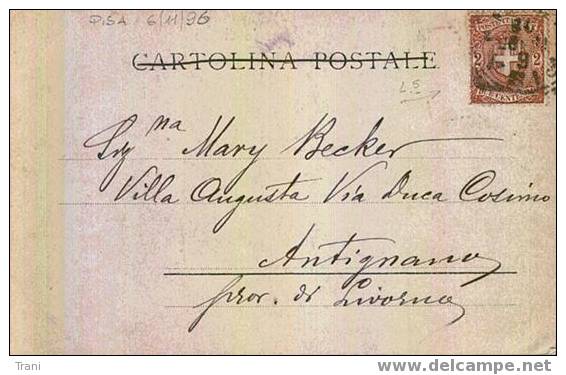 PISA 6/11/96
CARTOLINA POSTALE
L.5
2 2
DUE CENT
Sig.na Mary Becker
Villa Augusta Via Duca Cosimo
Antignano
prov. di Livorno
Trani
www.delcampe.net